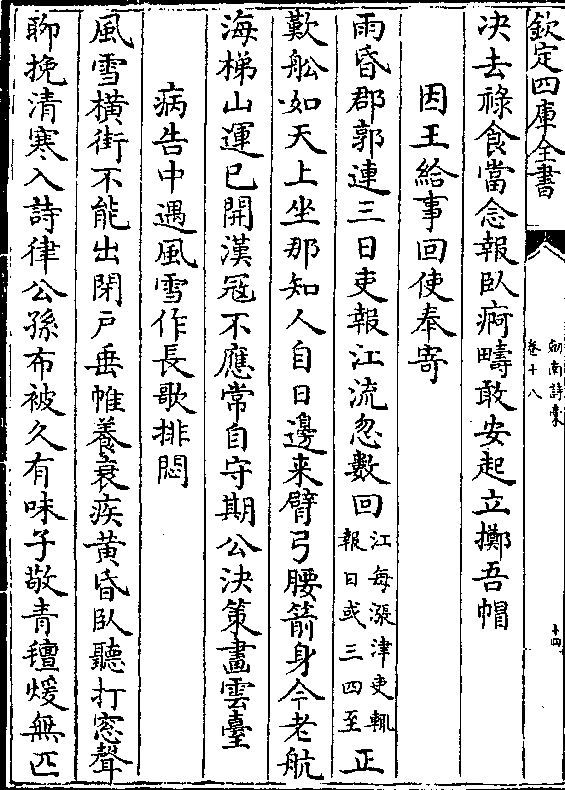 欽定四庫全書
劍南詩藁
卷十八
十四
决去祿食當念報臥痾疇敢安起立擲吾帽
因王給事回使奉寄
雨昏郡郭連三日吏報江流忽數回江每漲津吏輒報日或三四至正
歎舩如天上坐那知人自日邊来臂弓腰箭身今老航
海梯山運已開漢冦不應常自守期公決策畫雲臺
病告中遇風雪作長歌排悶
風雪橫街不能出閉戸垂帷養衰疾黄昏臥聽打窓聲
聊挽清寒入詩律公孫布被久有味子敬青氊煖無匹